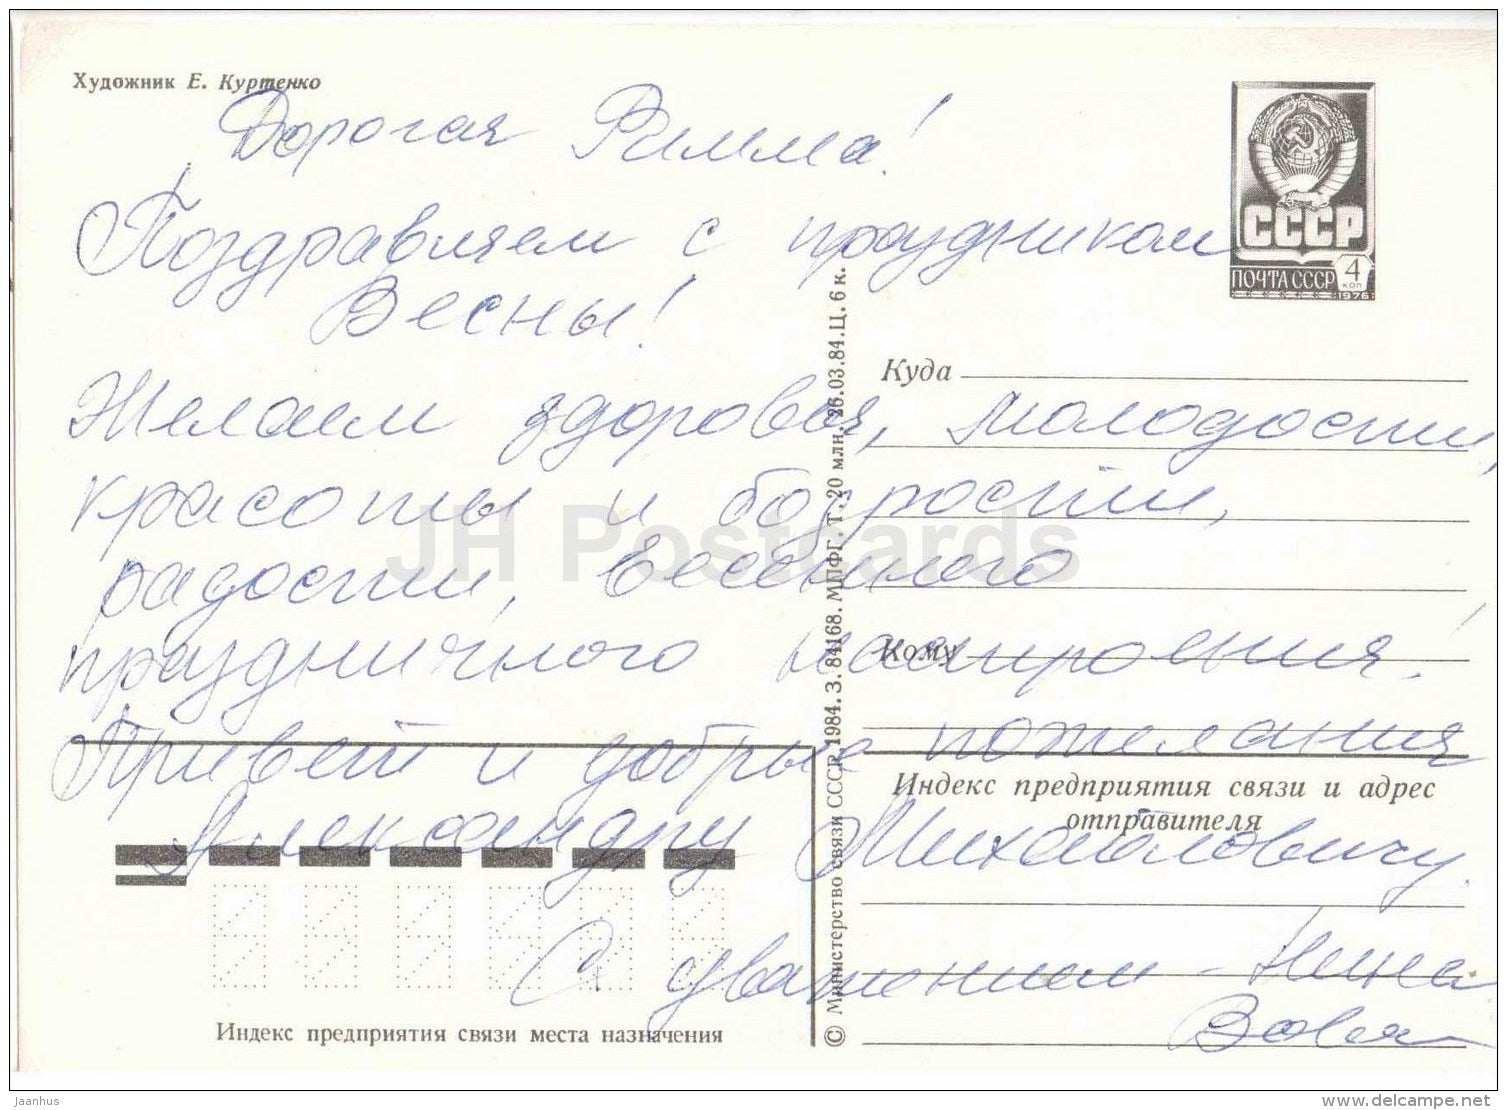 Художник Е. Куртенко
Дорогая Римма!
Поздравляем с праздником
Весны!
СССР
ПОЧТА СССР 4 КОП
1976
Куда
Желаем здоровья, молодости,
красоты и бодрости,
радости, весеннего
праздничного настроения!
Кому
Привет и добрые пожелания
Александру Михайловичу.
С уважением - Нина
Вова
Индекс предприятия связи и адрес
отправителя
Индекс предприятия связи места назначения
© Министерство связи СССР, 1984. З. 84168. МПФГ. Т. 20 млн. 26.03.84. Ц. 6 к.
JH Postcards
Jaanhus
delcampe.net